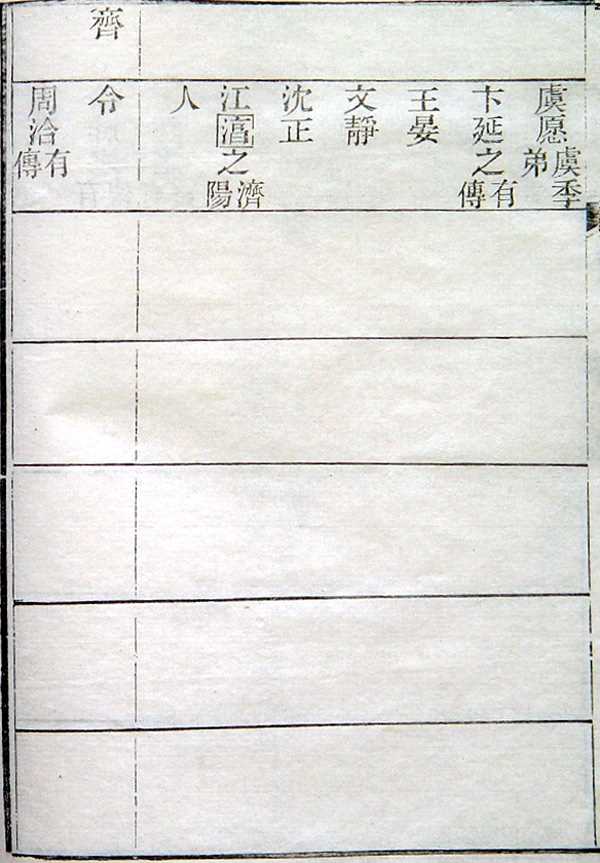 虞愿虞季弟
卞延之有傳
王晏
文靜
沈正
江湻之濟陽
人
齊
令
周洽有傳